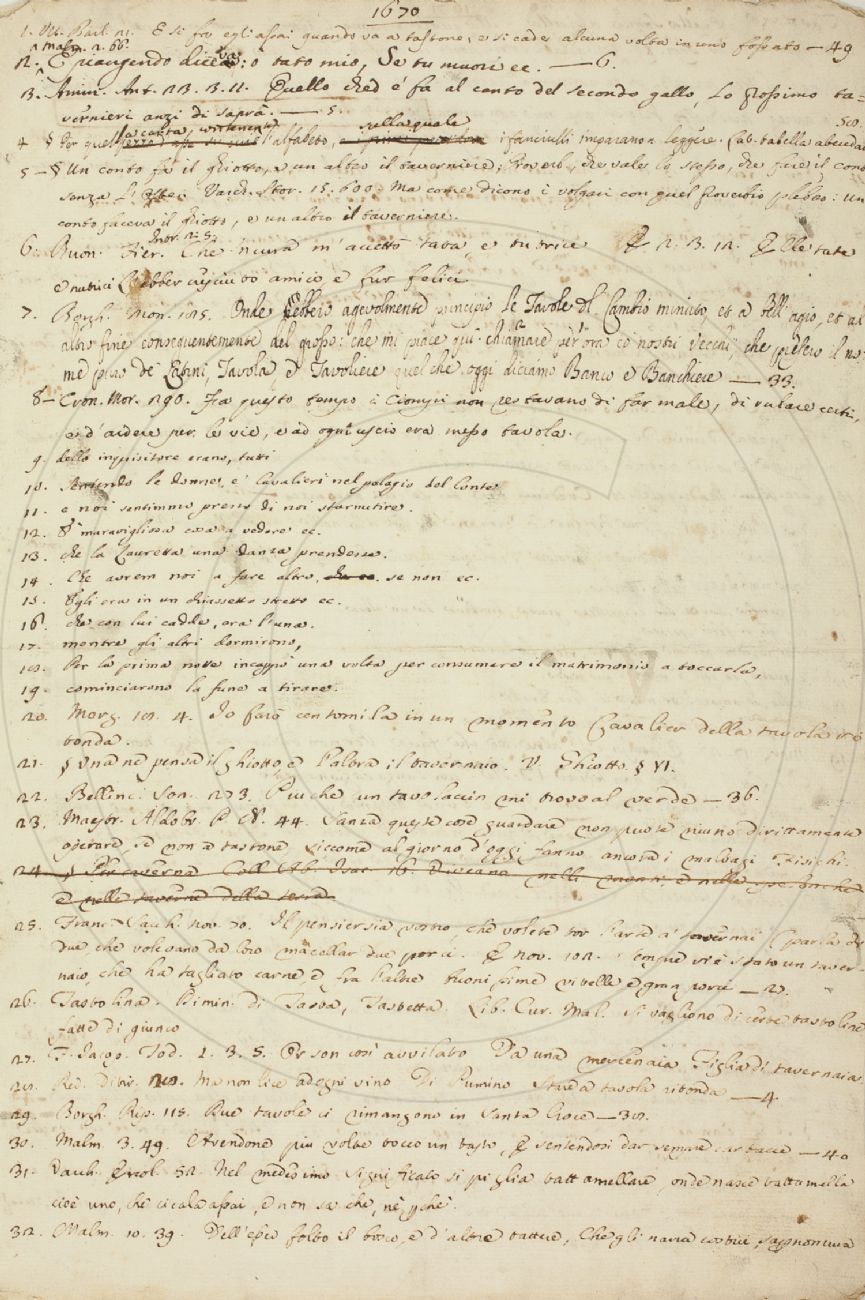 1670
1. Vit. Bart. 21. E si fra egli assai quando va a tastone, e si cade alcuna volta in uno fossato — 49
^ Malm. 2. 66.
2. E piangendo diceva: o tato mio, Se tu muori ec. — 6.
3. Amm. Ant. 23. 3. 11. Quello che è fa al canto del secondo gallo, Lo prossimo ta=
vernieri anzi di saprà. — 5.
la carta, contenente sulla quale 50.
4 § Per quel l'alfabeto, e i fanciulli imparano a leggere. Lab. tabella abecedar
5 — § Un conto fa il Ghiotto, e un altro il taverniere; Proverb. che vale lo stesso, che fare il conto
senza l'Oste. Varch. Stor. 15. 600. Ma come dicono i volgari con quel proverbio plebeo: Un
conto faceva il Ghiotto, e un altro il taverniere.
6. Buon. Fier. Che 'n cura m'accettò tata, e nutrice E 2. 3. 12. E le tate
e nutrici L'ebber ciascun per amico, e fur felici
7. Borgh. Mon. 105. Onde ebbero agevolmente principio le Tavole del Cambio minuto, et a bell'agio, et al
altro fine conseguentemente del grosso: che mi piace qui chiamare per ora co' nostri vecchi, che presero il no-
me pur de' Latini, Tavola, e Tavoliere quel che oggi diciamo Banco e Banchiere — 33.
8 — Cron. Mor. 290. In questo tempo i Ciompi non restavano di far male, di rubare certi,
e d'ardere per le vie, e ad ogni uscio era messo tavola.
9. dello inquisitore erano, tutti
10. Avendo le donne, e' Cavalieri nel palagio del Conte
11. e noi sentimmo presso di noi starnutire.
12. È maravigliosa cosa a vedere ec.
13. che la Lauretta una danza prendesse.
14. Che avrem noi a fare altro, se non ec.
15. Egli era in un chiassetto stretto ec.
16. che con lui cadde, era l'una.
17. mentre gli altri dormirono,
18. Per la prima notte incappò una volta per consumare il matrimonio a toccarla,
19. cominciarono la fune a tirare.
20. Morg. 18. 4. Io farò centomila in un momento Cavalier della tavola ri=
tonda.
21. § Una ne pensa il ghiotto, e l'altra il tavernaio. V. Ghiotto. § VI.
22. Bellinc. Son. 273. Più che un tavolaccin mi trovo al verde — 36.
23. Maestr. Aldobr. P. N. 44. Sanza queste cose guardare non puote niuno dirittamente
operare, se non a tastone, siccome al giorno d'oggi fanno ancora i malvagi Fisichi.
24. § Per caverna Coll. Ab. Isac. 16. Diceano nelli monti, e nelle spelonche
e nelle taverne della terra
25. Franc. Sacch. nov. 70. Il pensiersia vostro, che volete tor l'arte a' tavernai (parla di
due che volevano da loro macellar due porci. E nov. 102. empre vi è stato un taver-
naio, che ha tagliato carne, e fra l'altre buonissime vitelle e gran porci — 2.
26. Tastolina. Dimin. di Tasta, Tastetta. Lib. Cur. Mal. Si vagliono di certe tastoline
fatte di giunco
27. F. Jacop. Tod. 1. 3. 5. Per son così avvilato Da una mercenaia Figlia di tavernaia
28. Red. Ditir. Ma non lice ad ogni vino Di Pumino Stare a tavola ritonda — 4
29. Borgh. Rip. 115. Due tavole ci rimangono in Santa Croce — 30.
30. Malm. 3. 49. Avendone più volte tocco un tasto, E sentendosi dar sempre cartacce — 40
31. Varch. Ercol. 52. Nel medesimo significato si piglia tattamellare, onde nasce tattamella
cioè uno, che cicala assai, e non sa che, nè perchè.
32. Malm. 10. 39. Dell'esser folto il bosco, e d'altre tattere, Che gli narra costui,